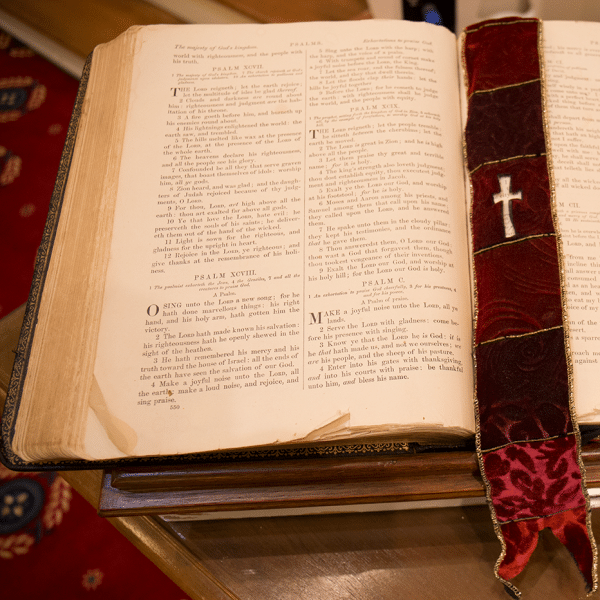 The majesty of God's kingdom.
PSALMS.
world with righteousness, and the people with
his truth.
PSALM XCVII.
THE LORD reigneth; let the earth rejoice;
let the multitude of isles be glad thereof.
2 Clouds and darkness are round about
him: righteousness and judgment are the hab-
itation of his throne.
3 A fire goeth before him, and burneth up
his enemies round about.
4 His lightnings enlightened the world: the
earth saw, and trembled.
5 The hills melted like wax at the presence
of the LORD, at the presence of the Lord of
the whole earth.
6 The heavens declare his righteousness,
and all the people see his glory.
7 Confounded be all they that serve graven
images, that boast themselves of idols: worship
him, all ye gods.
8 Zion heard, and was glad; and the daugh-
ters of Judah rejoiced because of thy judg-
ments, O LORD.
9 For thou, LORD, art high above all the
earth: thou art exalted far above all gods.
10 Ye that love the LORD, hate evil: he
preserveth the souls of his saints; he deliver-
eth them out of the hand of the wicked.
11 Light is sown for the righteous, and
gladness for the upright in heart.
12 Rejoice in the LORD, ye righteous; and
give thanks at the remembrance of his holi-
ness.
PSALM XCVIII.
1 The psalmist exhorteth the Jews, 4 the Gentiles, 7 and all the
creatures to praise God.
A Psalm.
O SING unto the LORD a new song; for he
hath done marvellous things: his right
hand, and his holy arm, hath gotten him the
victory.
2 The LORD hath made known his salvation:
his righteousness hath he openly shewed in the
sight of the heathen.
3 He hath remembered his mercy and his
truth toward the house of Israel: all the ends of
the earth have seen the salvation of our God.
4 Make a joyful noise unto the LORD, all
the earth: make a loud noise, and rejoice, and
sing praise.
550
5 Sing unto the LORD with the harp; with
the harp, and the voice of a psalm.
6 With trumpets and sound of cornet make
a joyful noise before the LORD, the King.
7 Let the sea roar, and the fulness thereof;
the world, and they that dwell therein.
8 Let the floods clap their hands: let the
hills be joyful together
9 Before the LORD; for he cometh to judge
the earth: with righteousness shall he judge
the world, and the people with equity.
PSALM XCIX.
THE LORD reigneth; let the people tremble:
he sitteth between the cherubims; let the
earth be moved.
2 The LORD is great in Zion; and he is high
above all the people.
3 Let them praise thy great and terrible
name; for it is holy.
4 The king's strength also loveth judgment;
thou dost establish equity, thou executest judg-
ment and righteousness in Jacob.
5 Exalt ye the LORD our God, and worship
at his footstool; for he is holy.
6 Moses and Aaron among his priests, and
Samuel among them that call upon his name;
they called upon the LORD, and he answered
them.
7 He spake unto them in the cloudy pillar:
they kept his testimonies, and the ordinance
that he gave them.
8 Thou answeredst them, O LORD our God:
thou wast a God that forgavest them, though
thou tookest vengeance of their inventions.
9 Exalt the LORD our God, and worship at
his holy hill; for the LORD our God is holy.
PSALM C.
1 An exhortation to praise God cheerfully, 3 for his greatness, 4
and for his power.
A Psalm of praise.
MAKE a joyful noise unto the LORD, all ye
lands.
2 Serve the LORD with gladness: come be-
fore his presence with singing.
3 Know ye that the LORD he is God: it is
he that hath made us, and not we ourselves; we
are his people, and the sheep of his pasture.
4 Enter into his gates with thanksgiving,
and into his courts with praise: be thankful
unto him, and bless his name.